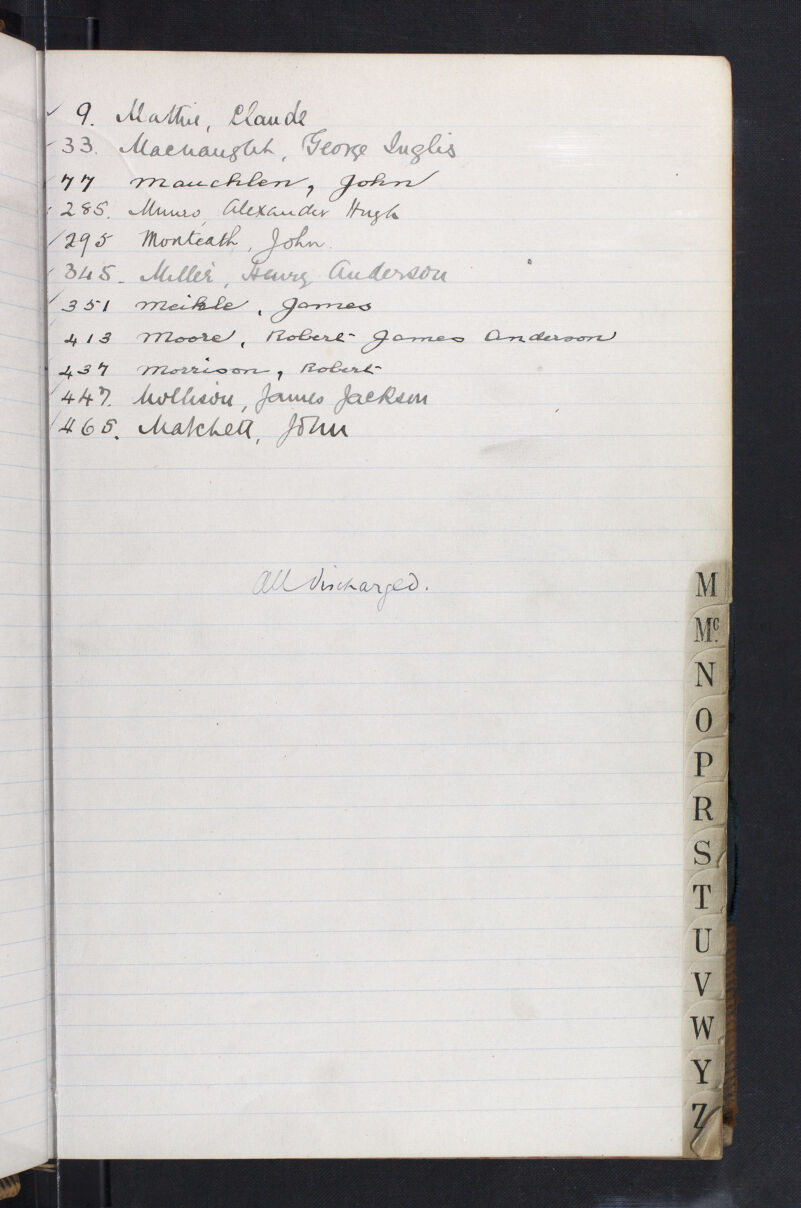 ✓ 9. Mathie, Claude
/ 33. Macnaught, George Inglis
/ 77 Maucklen, John
/ 285. Munro, Alexander Hugh
/ 295 Monteath, John.
/ 345. Miller, Henry Anderson
/ 351 Meikle, James
413 Moore, Robert James Anderson
/ 437 Morrison, Robert
/ 447. Mollison, James Jackson
/ 465. Matchett, John
All Discharged.
M
Mc.
N
O
P
R
S
T
U
V
W
Y
Z